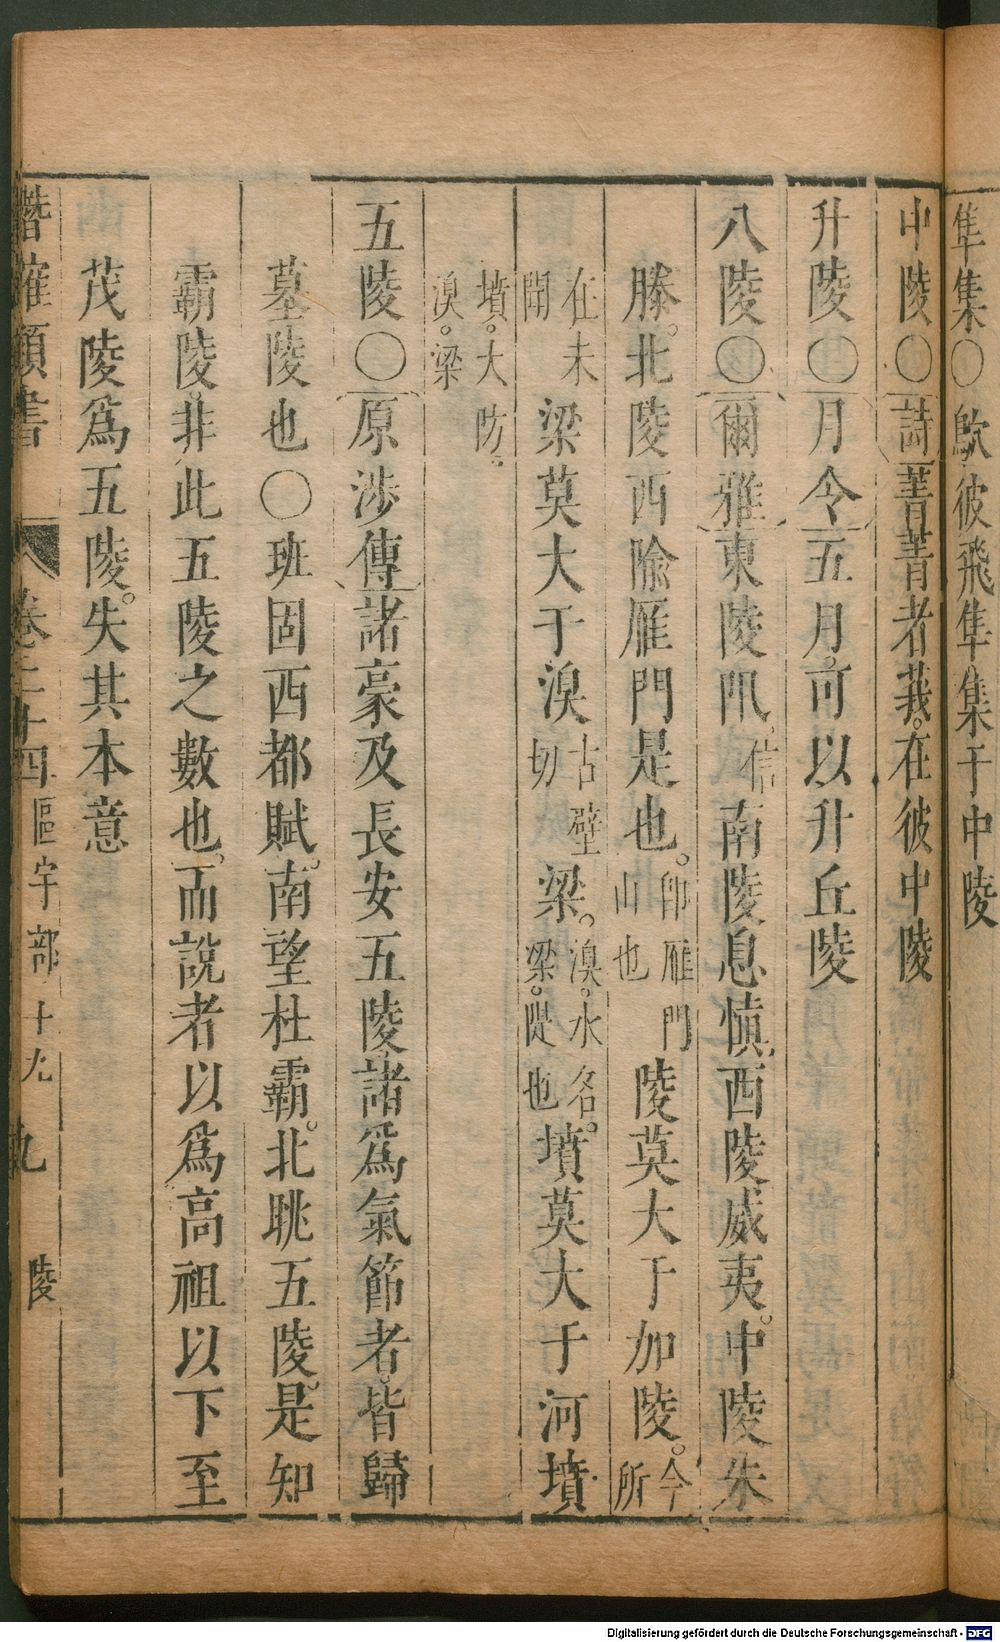 隼集〇鴥彼飛隼集于中陵
中陵〇詩菁菁者莪。在彼中陵
升陵〇月令五月。可以升丘陵
八陵〇爾雅東陵阠。信南陵息愼。西陵威夷。中陵朱
滕。北陵西隃雁門是也。卽雁門山也陵莫大于加陵。今所
在未聞梁莫大于湨古壁切梁。湨。水名。梁。隄也墳莫大于河墳
墳。大防。湨。梁
五陵〇原涉傳諸豪及長安五陵諸爲氣節者。皆歸
墓陵也〇班固西都賦。南望杜霸。北眺五陵。是知
霸陵。非此五陵之數也。而說者以爲高祖以下至
茂陵爲五陵。失其本意
潛確類書 卷二十四 區宇部十九 九 陵
Digitalisierung gefördert durch die Deutsche Forschungsgemeinschaft - DFG